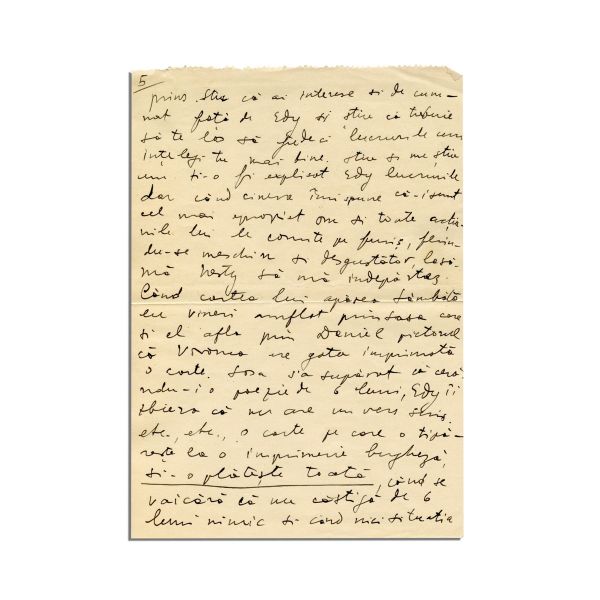 5
prins. Știu că ai interese și de cum-
nat față de Edy și știu că trebuie
să te las să judeci lucrurile cum
înțelegi tu mai bine. Știu și nu știu
cum ți-o fi explicat Edy lucrurile
dar când cineva îmi spune că-i sunt
cel mai apropiat om și toate acțiu-
nile lui le comite pe furiș, ferin-
du-se meschin și desgustător, lasă-
mă să mă îndepărtez.
Când cartea lui apărea Sâmbătă
eu vineri am aflat prin Sașa care
și el afla prin Daniel pictorul
că Virona are gata imprimată
o carte. Sașa s'a supărat că cerâ-
ndu-i o poezie de 6 luni, Edy îi
sbiera că nu are un vers scris,
etc., etc., o carte pe care o tipă-
rește la o imprimerie burgheză,
și-o plătește toată, când se
vaicără că nu câștigă de 6
luni nimic și când nici situația